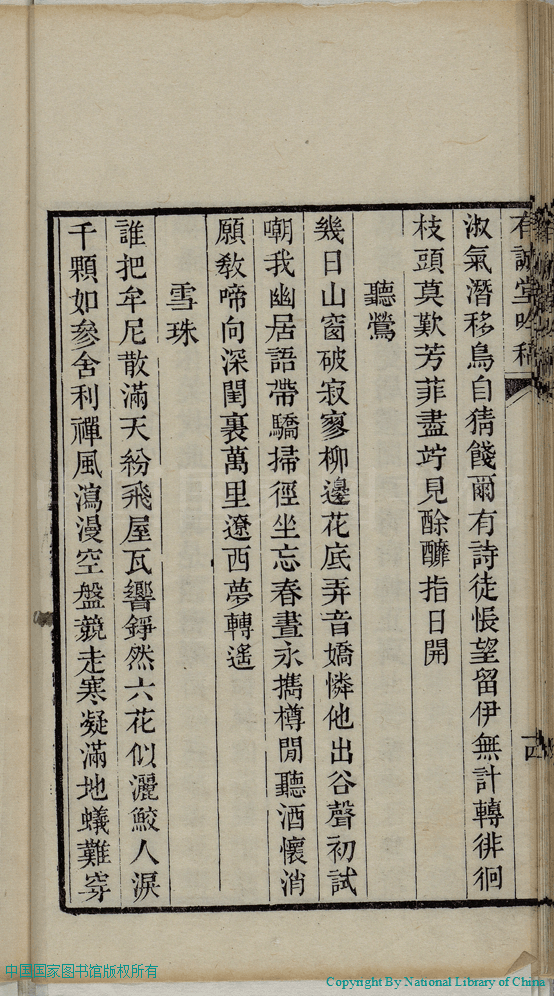 有誠堂吟稿
淑氣潛移鳥自猜餞爾有詩徒悵望留伊無計轉徘徊
枝頭莫歎芳菲盡竚見酴醿指日開
聽鶯
幾日山窗破寂寥柳邊花底弄音嬌憐他出谷聲初試
嘲我幽居語帶驕掃徑坐忘春晝永攜樽閒聽酒懷消
願教啼向深閨裏萬里遼西夢轉遙
雪珠
誰把牟尼散滿天紛飛屋瓦響錚然六花似灑鮫人淚
千顆如參舍利禪風瀉漫空盤競走寒凝滿地蟻難穿
中国国家图书馆版权所有
Copyright By National Library of China